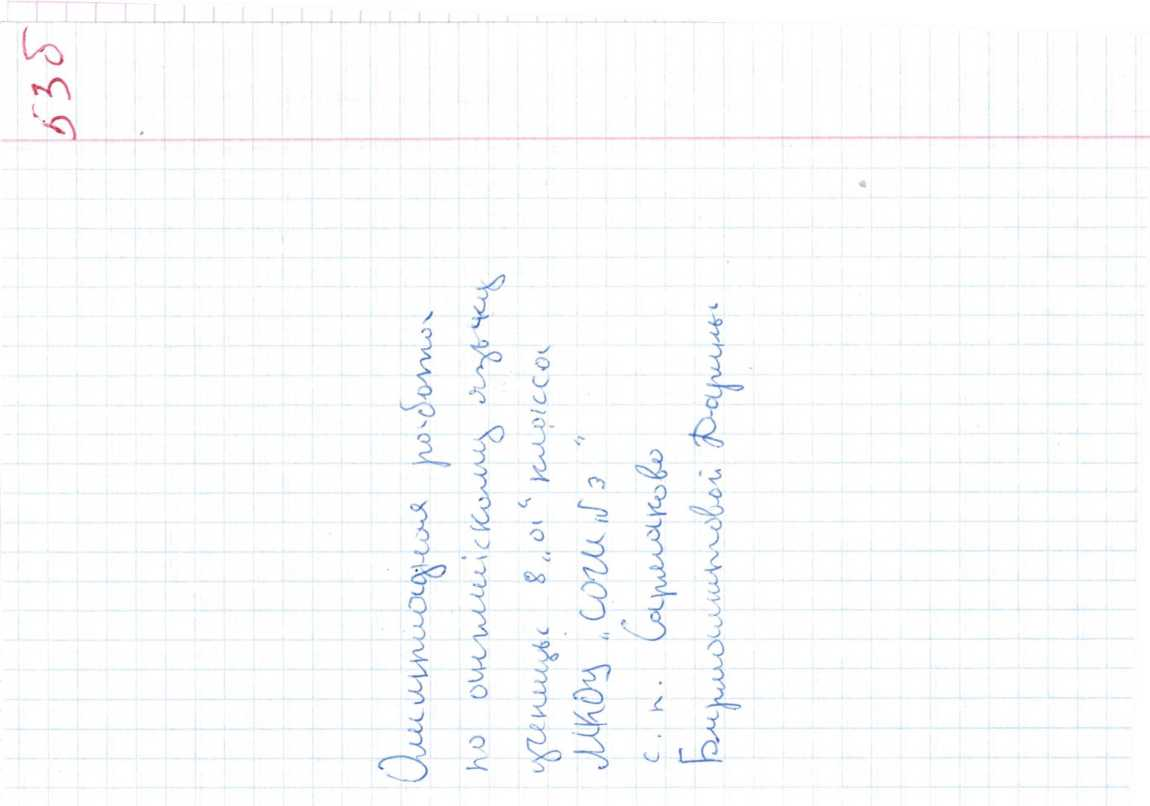 53б
Олимпиадная работа
по английскому языку
ученицы 8 „а“ класса
МКОУ „СОШ №3“
с. п. Сармаково
Бирмамитовой Дарины